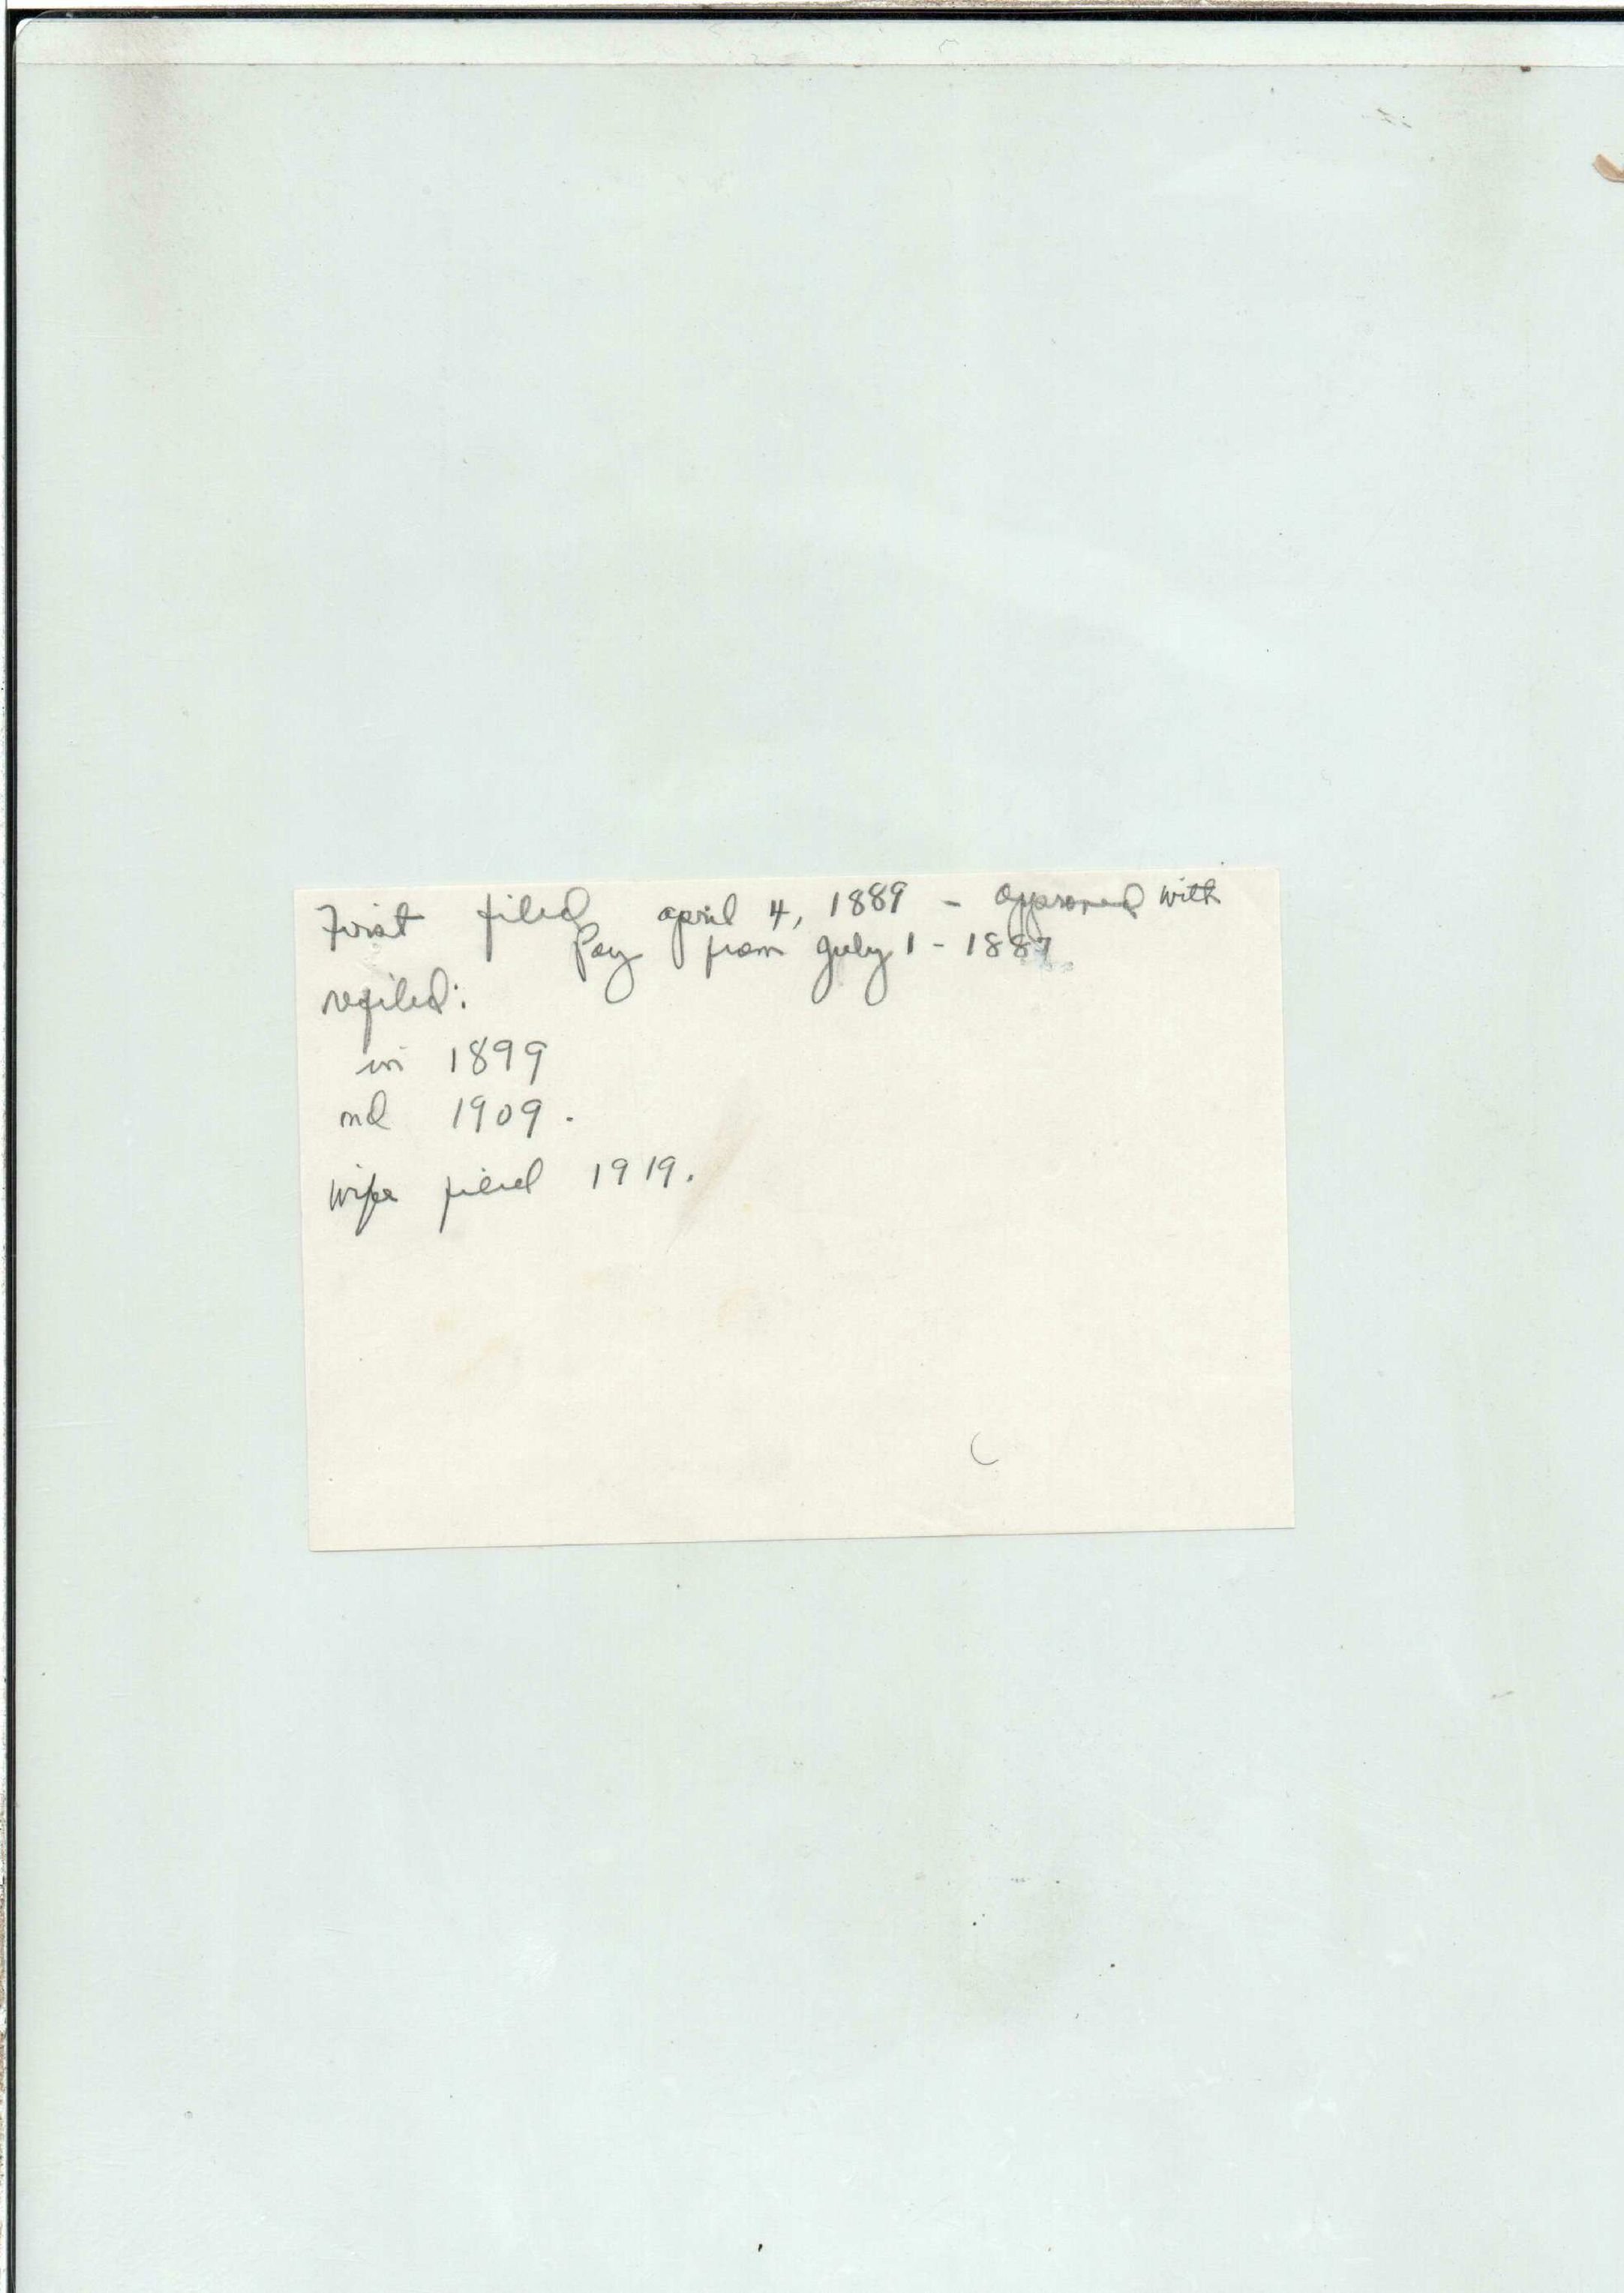 First filed april 4, 1889 - approved with
Pay from July 1 - 1887
refiled:
in 1899
nd 1909.
Wife filed 1919.